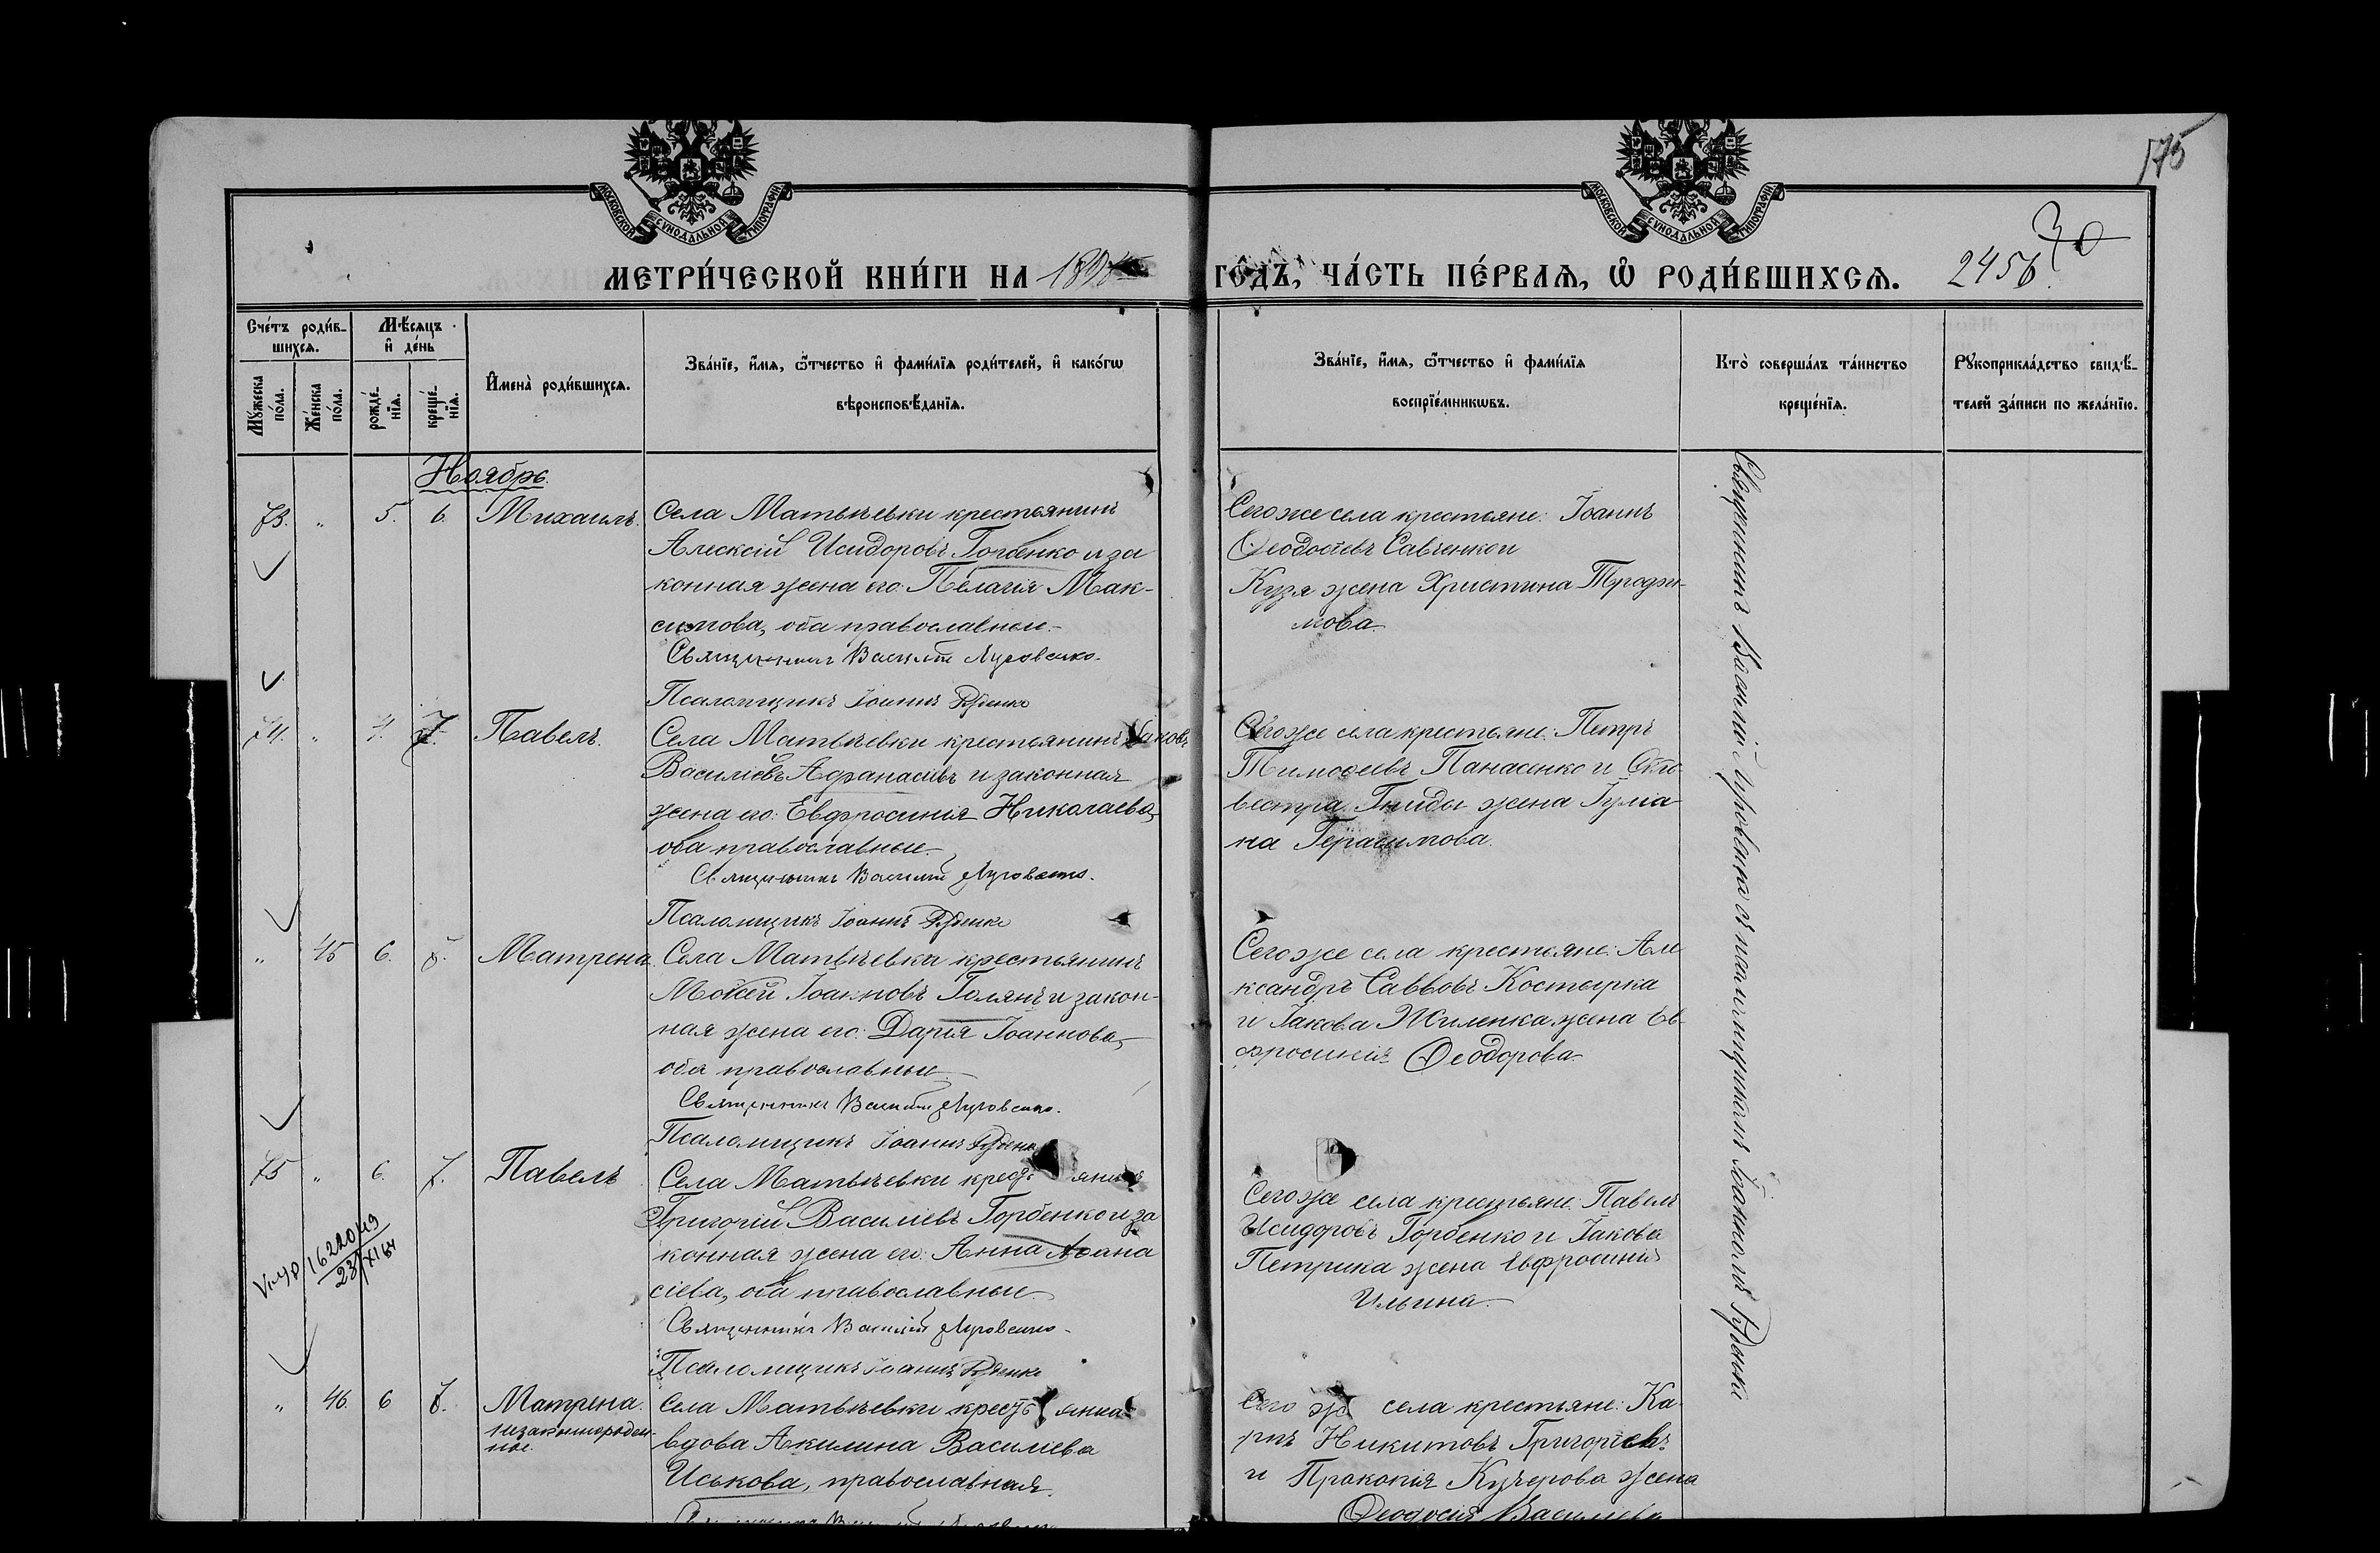 175
30
МОСКОВСКОЙ СѴНОДАЛЬНОЙ ТИПОГРАФІИ
МОСКОВСКОЙ СѴНОДАЛЬНОЙ ТИПОГРАФІИ
МЕТРИ́ЧЕСКОЙ КНИ́ГИ НА 189 ГО́ДЪ, ЧА́СТЬ ПЕ́РВАЯ, Ѡ҆ РОДИ́ВШИХСѦ. 2456.
Сче́тъ роди́в-
шихсѧ.
Мꙋ́жеска по́ла.
Же́нска по́ла.
Мѣ́сѧцъ
и҆ де́нь
рожде́-
нїѧ.
креще́-
нїѧ.
И҆мена̀ роди́вшихсѧ.
Зва́нїе, и҆́мѧ, ѻ҆́тчество и҆ фами́лїѧ роди́телей, и҆ како́гѡ
вѣроисповѣ́данїѧ.
Зва́нїе, и҆́мѧ, ѻ҆́тчество и҆ фами́лїѧ
воспрїе́мникѡвъ.
Кто̀ соверша́лъ та́инство
креще́нїѧ.
Рꙋкоприкла́дство свидѣ́-
телей за́писи по жела́нїю.
Ноябрь.
73. " 5. 6. Михаилъ.
Села Матвѣевки крестьянинъ
Алексій Исидоровъ Горбенко и за
конная жена его: Пелагія Мак-
симова, оба православные.
Священникъ Василій
Псаломщикъ Іоаннъ
Сего же села крестьяне: Іоаннъ
Ѳеодосіевъ Савченко и
Кузя жена Христина Трофи-
мова.
74. " 4. 7. Павелъ.
Села Матвѣевки крестьянинъ Іаковъ
Василіевъ Афанасіевъ и законная
жена его: Евфросинія Николаева,
оба православные.
Священникъ Василій
Псаломщикъ Іоаннъ
Сего же села крестьяне: Петръ
Тимоѳеевъ Панасенко и Силь
вестра Гниды жена Іуліа-
на Герасимова.
" 45 6. 7. Матрена.
Села Матвѣевки крестьянинъ
Мокей Іоанновъ Голянъ и закон-
ная жена его: Дарія Іоаннова,
оба православные.
Священникъ Василій
Псаломщикъ Іоаннъ
Сего же села крестьяне: Але
ксандръ Саввовъ Костырка
и Іакова Жиленка жена Ев-
фросинія Ѳеодорова.
75 " 6. 7. Павелъ
Села Матвѣевки крестьянинъ
Григорій Василіевъ Горбенко и за
конная жена его: Анна Аѳана
сіева, оба православные.
Священникъ Василій
Псаломщикъ Іоаннъ
Сего же села крестьяне: Павелъ
Исидоровъ Горбенко и Іакова
Петрика жена Евфросинія
Ильина.
1622049
23/XI 64
" 46. 6 7. Матрена.
незаконнорожден-
ная.
Села Матвѣевки крестьянка
вдова Акилина Василіева
Иськова, православная.
Сего же села крестьяне: Ка
рпъ Никитовъ Григоріевъ
и Прокопія Кучерова жена
Ѳеодосія Василіева
Священникъ Василій съ псаломщикомъ Іоанномъ